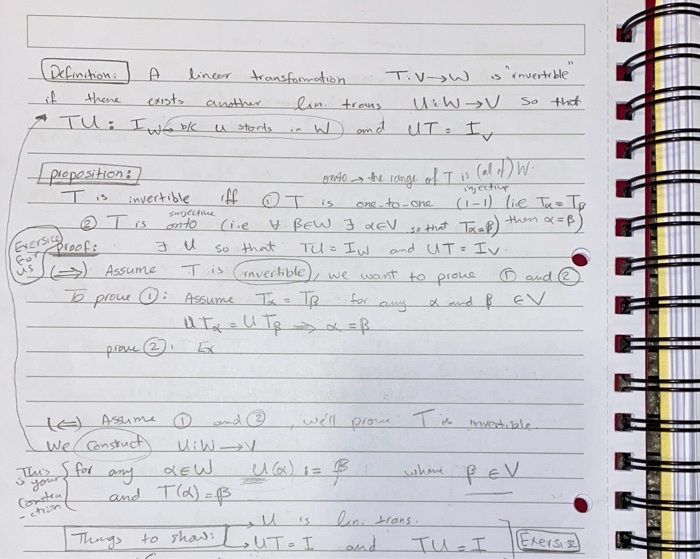 Definition: A linear transformation T: V→W is "invertible"
if there exists another lin. trans U: W→V so that
TU = I_W → b/c U starts in W and UT = I_V
proposition: onto → the range of T is (all of) W.
injective
T is invertible iff ① T is one-to-one (1-1) (i.e Tα = Tβ then α=β)
surjective
② T is onto (i.e ∀ β∈W ∃ α∈V so that Tα=β)
Exersice for us
proof: ∃ U so that TU = I_W and UT = I_V.
(⇒) Assume T is invertible, we want to prove ① and ②
To prove ①: Assume Tα = Tβ for any α and β ∈V
UTα = UTβ ⇒ α = β
prove ②: Ex
(⇐) Assume ① and ②, we'll prove T is invertible.
We Construct U: W→V
This is your constru-ction
for any α∈W U(α) := β where β∈V
and T(α) = β
Things to show: → U is lin. trans.
→ UT = I and TU = I Exersise